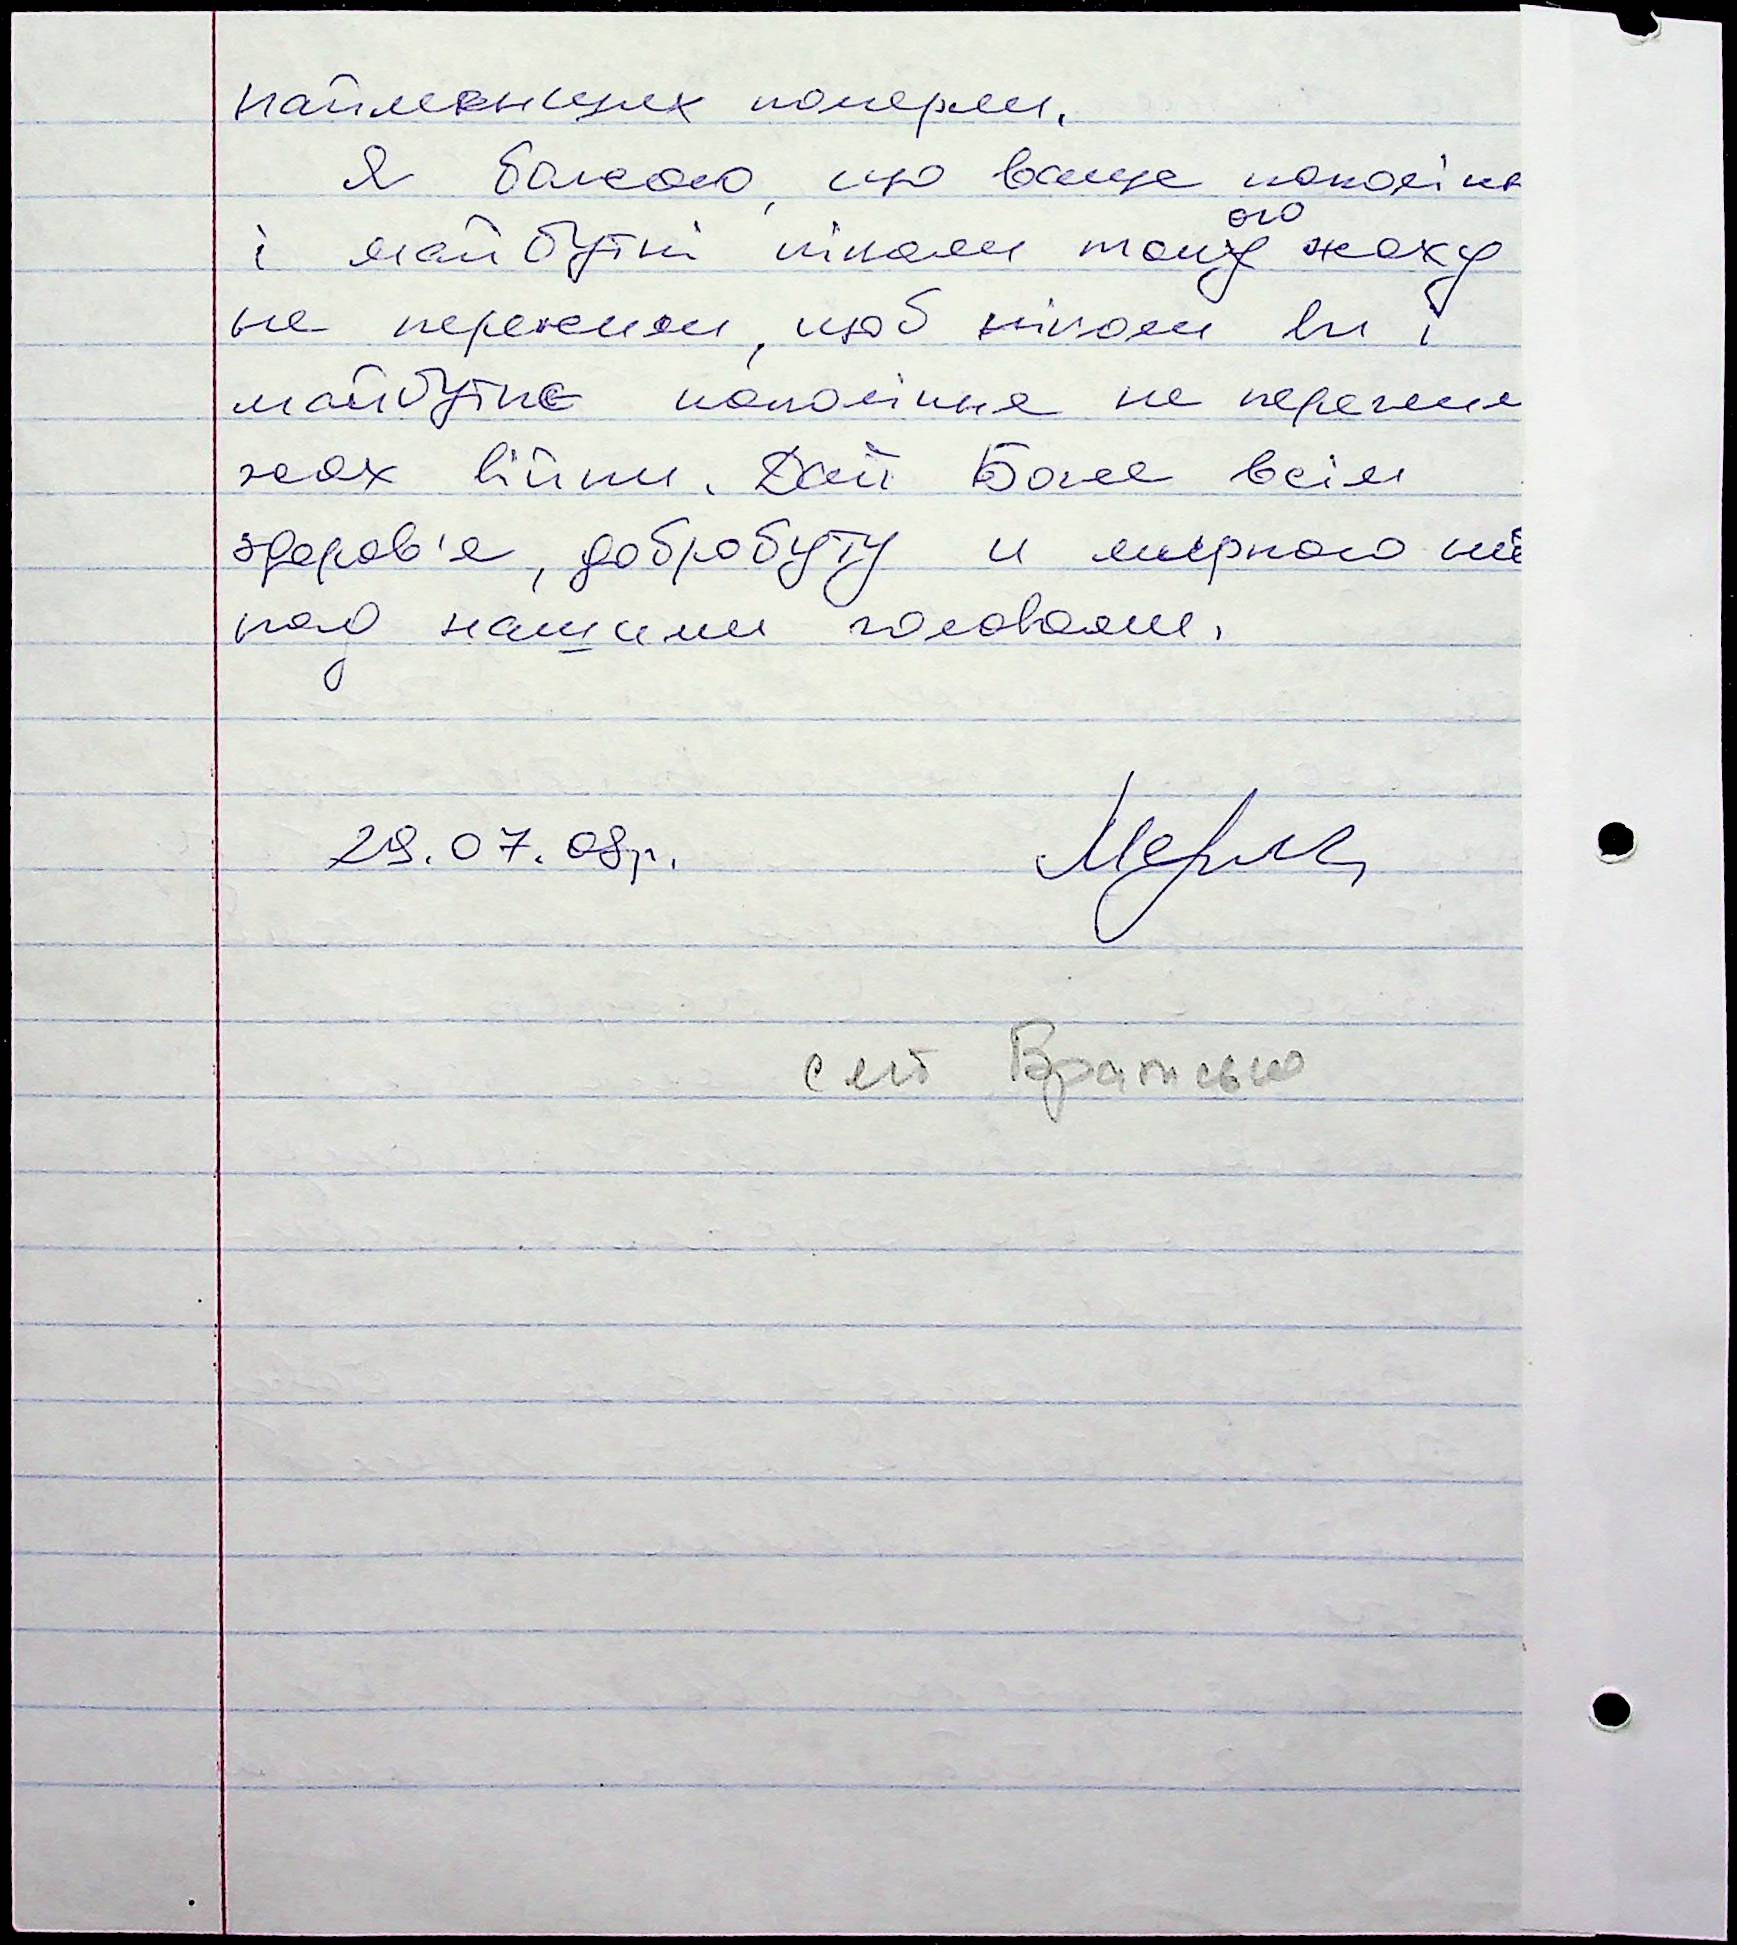 найменших померли.
Я бажаю, що ваше поколінн
і майбутні ніколи такого жаху
не пережили, щоб ніколи ви і
майбутнє покоління не пережили
жах війни. Дай Боже всім
здоров'я, добробуту и мирного неб
над нашими головами.
29.07.08р.
смт Братське